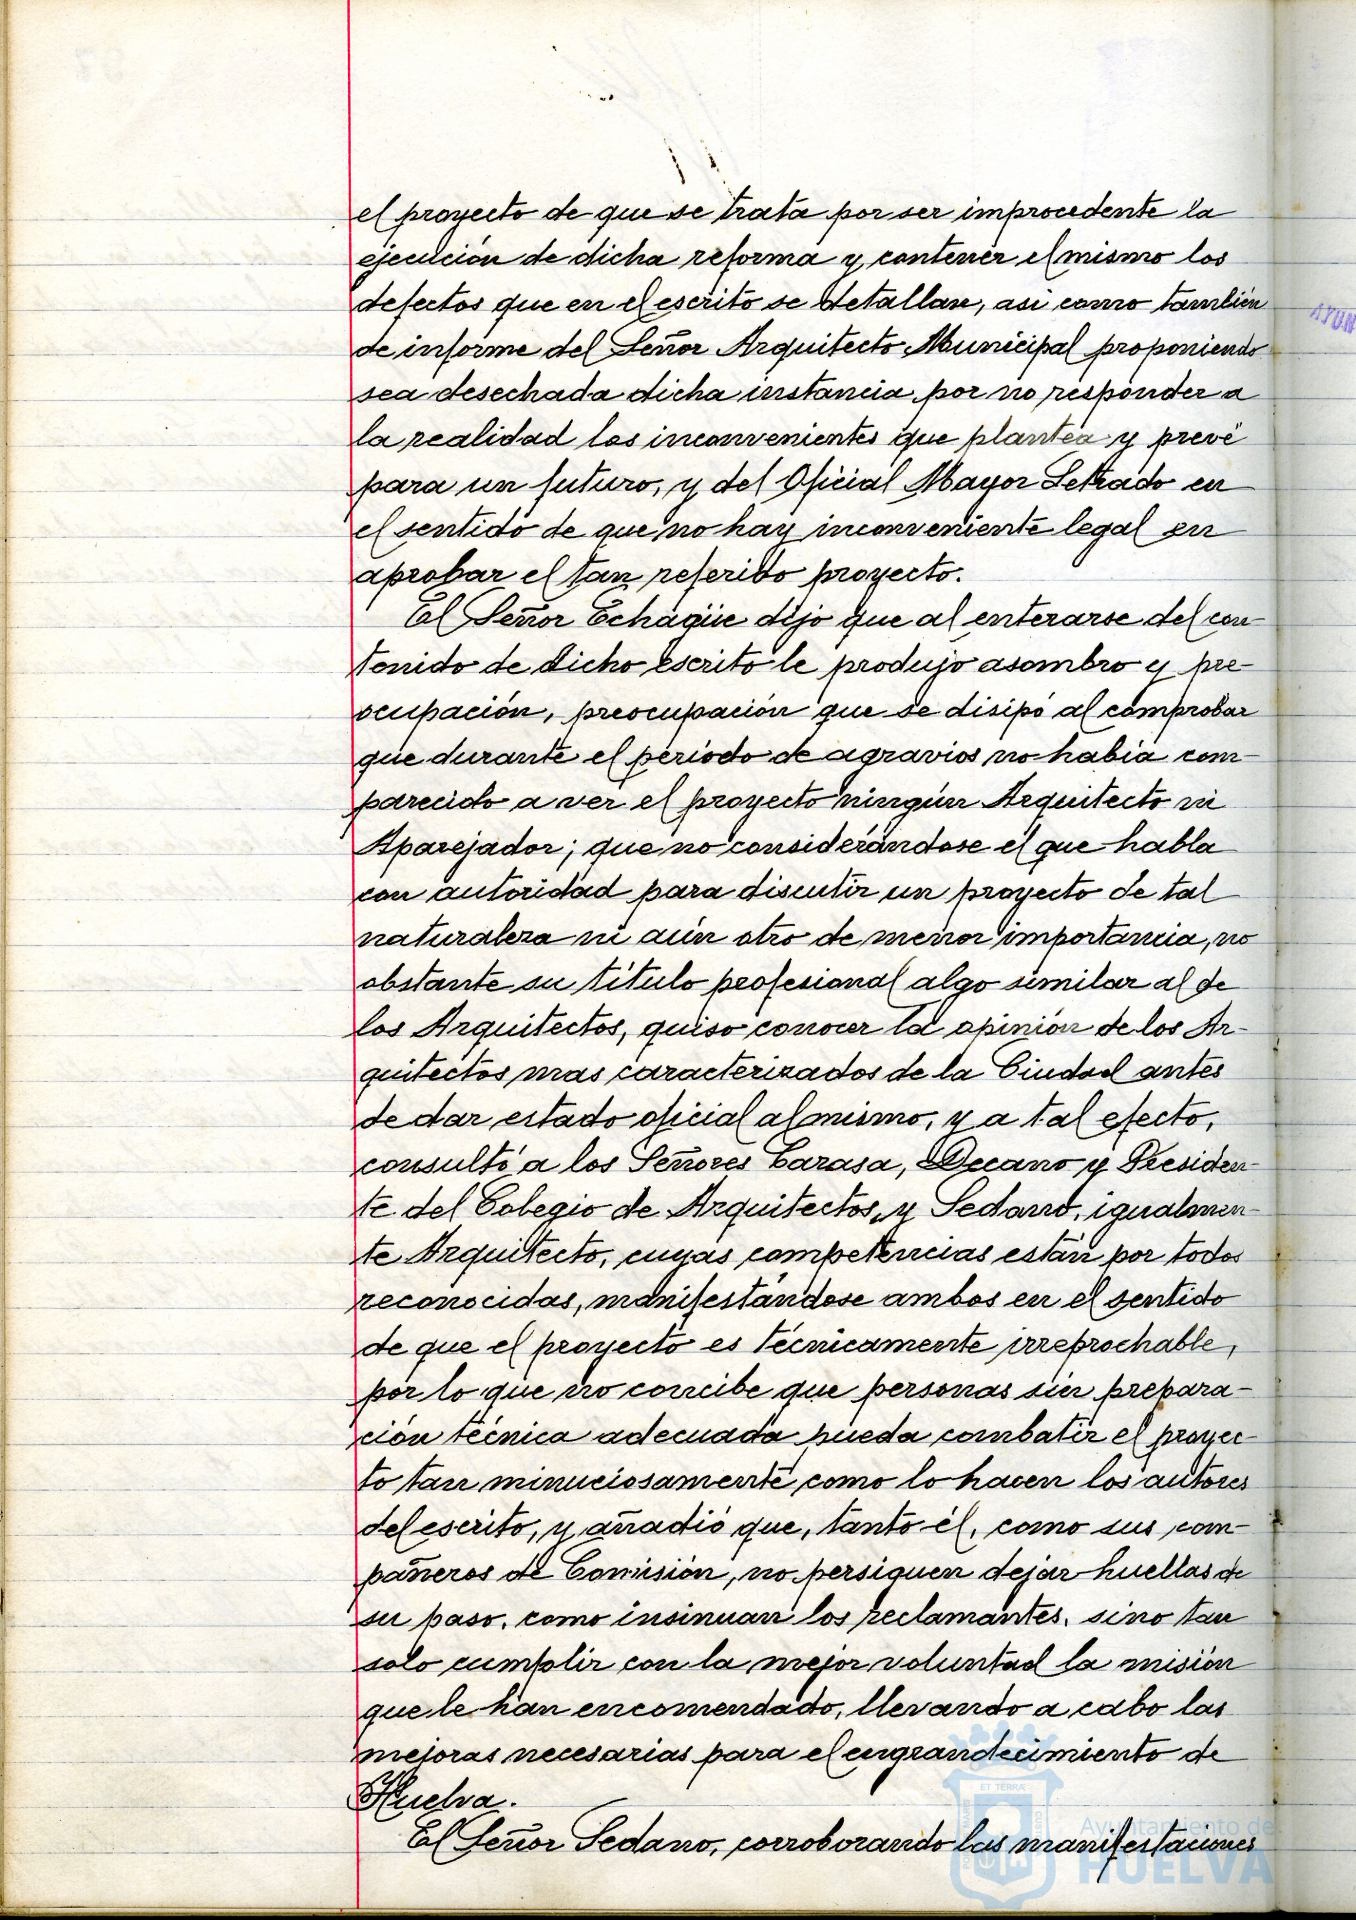 el proyecto de que se trata por ser improcedente la
ejecución de dicha reforma y contener el mismo los
defectos que en el escrito se detallan, asi como también
de informe del Señor Arquitecto Municipal proponiendo
sea desechada dicha instancia por no responder a
la realidad los inconvenientes que plantea y prevé
para un futuro, y del Oficial Mayor Letrado en
el sentido de que no hay inconveniente legal en
aprobar el tan referido proyecto.
El Señor Echagüe dijo que al enterarse del con-
tenido de dicho escrito le produjo asombro y pre-
ocupación, preocupación que se disipó al comprobar
que durante el periodo de agravios no habia com-
parecido a ver el proyecto ningún Arquitecto ni
Aparejador; que no considerándose el que habla
con autoridad para discutir un proyecto de tal
naturaleza ni aún otro de menor importancia, no
obstante su título profesional algo similar al de
los Arquitectos, quiso conocer la opinión de los Ar-
quitectos mas caracterizados de la Ciudad antes
de dar estado oficial al mismo, y a tal efecto,
consultó a los Señores Carasa, Decano y Presiden-
te del Colegio de Arquitectos, y Sedano, igualmen-
te Arquitecto, cuyas competencias están por todos
reconocidas, manifestándose ambos en el sentido
de que el proyecto es técnicamente irreprochable,
por lo que no concibe que personas sin prepara-
ción técnica adecuada pueda combatir el proyec-
to tan minuciosamente como lo hacen los autores
del escrito, y añadió que, tanto él, como sus com-
pañeros de Comisión, no persiguen dejar huellas de
su paso, como insinuan los reclamantes, sino tan
solo cumplir con la mejor voluntad la misión
que le han encomendado, llevando a cabo las
mejoras necesarias para el engrandecimiento de
Huelva.
El Señor Sedano, corroborando las manifestaciones
AYUN
Ayuntamiento de
HUELVA